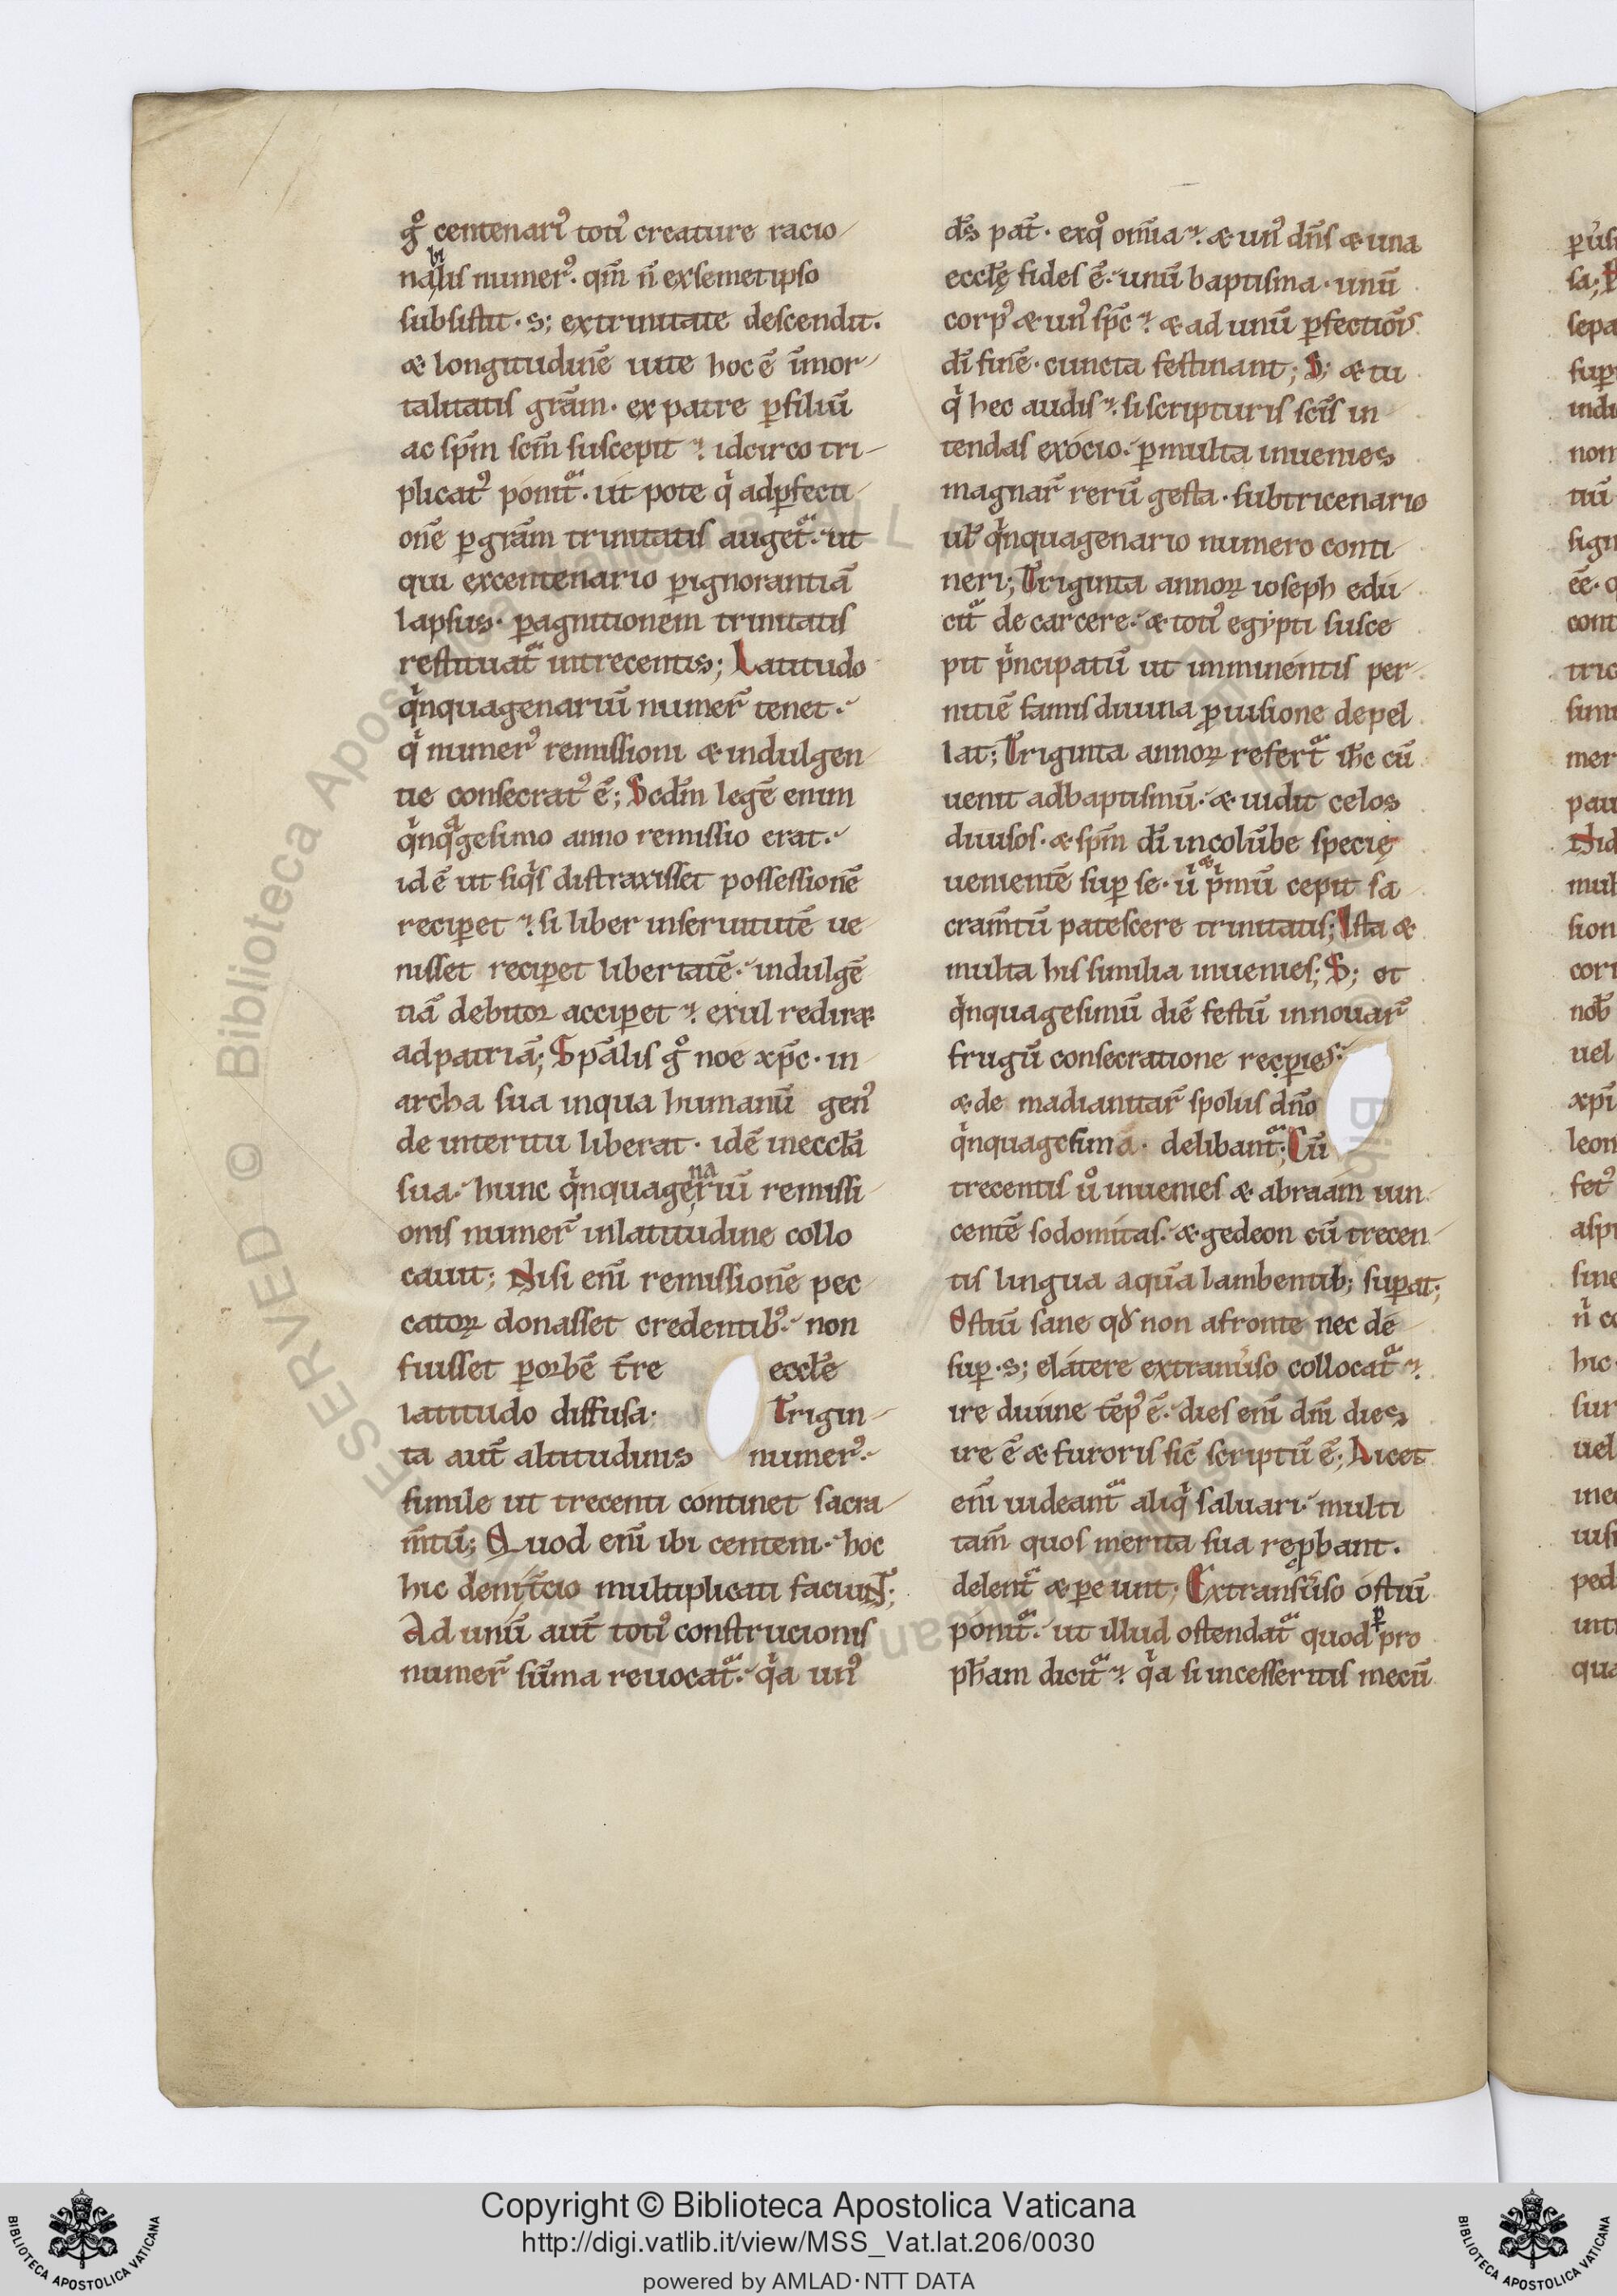 gͦ centenari᷒ toti᷒ creature racio
nabilis numer᷒. qm̄ n̄ exsemetipso
subsistit. s; extrinitate descendit.
& longitudinē uite hoc ē īmor
talitatis grām. ex patre ꝑfiliū
ac spm̄ scm̄ suscepit. idcirco tri
plicat᷒ ponitᷓ. ut pote qͥ adꝑfecti
onē ꝑgrām trinitatis augetᷓ. ut
qui excentenario ꝑignorantiā
lapsus. ꝑagnitionem trinitatis
restituatᷓ intrecentis; Latitudo
qͥnquagenariū numer̄ tenet.
qͥ numer᷒ remissioni & indulgen
tie consecrat᷒ ē; Scdm̄ legē enim
qͥnqᷓgesimo anno remissio erat.
id ē ut siqͥs distraxisset possessionē
reciꝑet. si liber inseruitutē ue
nisset reciꝑet libertatē. indulgē
tiā debitor acciꝑet. exul redir&
adpatriā; Spālis gͦ noe xp̄c. in
archa sua inqua humanū gen᷒
de interitu liberat. idē ineccłā
sua. hunc qͥnquagenariū remissi
onis numer̄ inlatitudine collo
cauit; Nisi eni̅ remissionē pec
catoꝝ donasset credentib᷒. non
fuisset ꝑorbē t̄re eccłe
latitudo diffusa. Trigin
ta aut̄ altitudinis numer᷒.
simile ut trecenti continet sacra
m̄tū; Quod eni̅ ibi centeni. hoc
hic deni t̄cio multiplicati faciunt;
Ad unū aut̄ toti᷒ construcionis
numer̄ sūma reuocatᷓ. qͥa un᷒
ds̄ pat̄. exqͦ om̄ia. & un᷒ dn̄s & una
eccłę fides ē. unū baptisma. unū
corp᷒ & un᷒ sp̄c. & ad unū ꝑfectiōis
dī finē. cuncta festinant; S; & tu
qͥ hec audis. si scripturis scīs in
tendas exocio. ꝑmulta inuenies
magnar̄ rerū gesta. subtricenario
uł qͥnquagenario numero conti
neri; Triginta annoꝝ ioseph edu
citᷓ de carcere. & toti᷒ egypti susce
pit pͥncipatū ut imminentis per
nitiē famis diuina ꝓuisione depel
lat; Triginta annoꝝ refertᷓ ih̄c cū
uenit adbaptismū. & uidit celos
diuisos. & spm̄ dī incolūbe specię
uenientē suꝑ se. uͥ & pͥmū cepit sa
cram̄tū patescere trinitatis; Ista &
multa his similia inuenies; S; et
qͥnquagesimū diē festū innouar̄
frugū consecratione recipies.
& de madianitar̄ spoliis dn̄o
qͥnquagesima. delibantᷓ; Cū
trecentis uͦ inuenies & abraam uin
centē sodomitas. & gedeon cū trecen
tis lingua aquā lambentib; suꝑat;
Ostiū sane qđ non afronte nec de
suꝑ. s; elatere extranuͥso collocatᷓ.
ire diuine tēp᷒ ē. dies eni̅ dn̄i dies
ire ē & furoris sic̄ scriptū ē; Licet
eni̅ uideantᷓ aliqͥ saluari. multi
tam̄ quos merita sua reꝓbant.
delentᷓ & ꝑeunt; Extransuͥso ostiū
ponitᷓ. ut illud ostendatᷓ quod ꝑ pro
ph̄am dicitᷓ. qͥa si incesseritis mecū
Copyright © Biblioteca Apostolica Vaticana
http://digi.vatlib.it/view/MSS_Vat.lat.206/0030
powered by AMLAD·NTT DATA
BIBLIOTECA APOSTOLICA VATICANA
BIBLIOTECA APOSTOLICA VATICANA